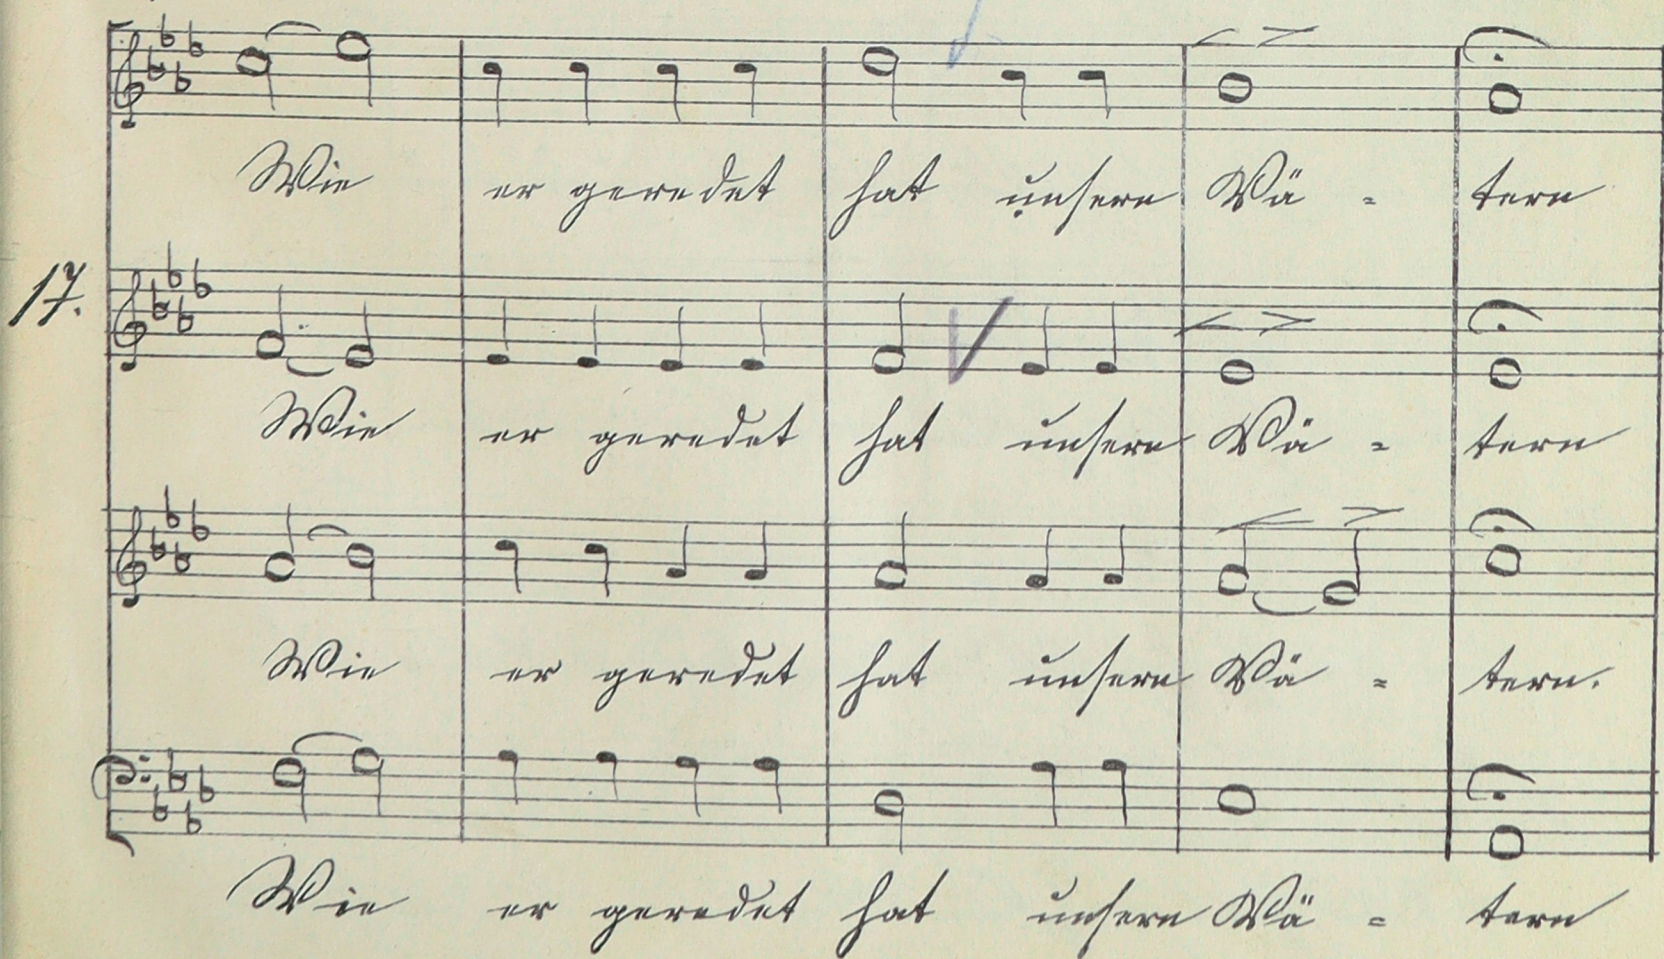 Wie er geredet hat unsern Vä = tern
17.
Wie er geredet hat unsern Vä = tern
Wie er geredet hat unsern Vä = tern.
Wie er geredet hat unsern Vä = tern